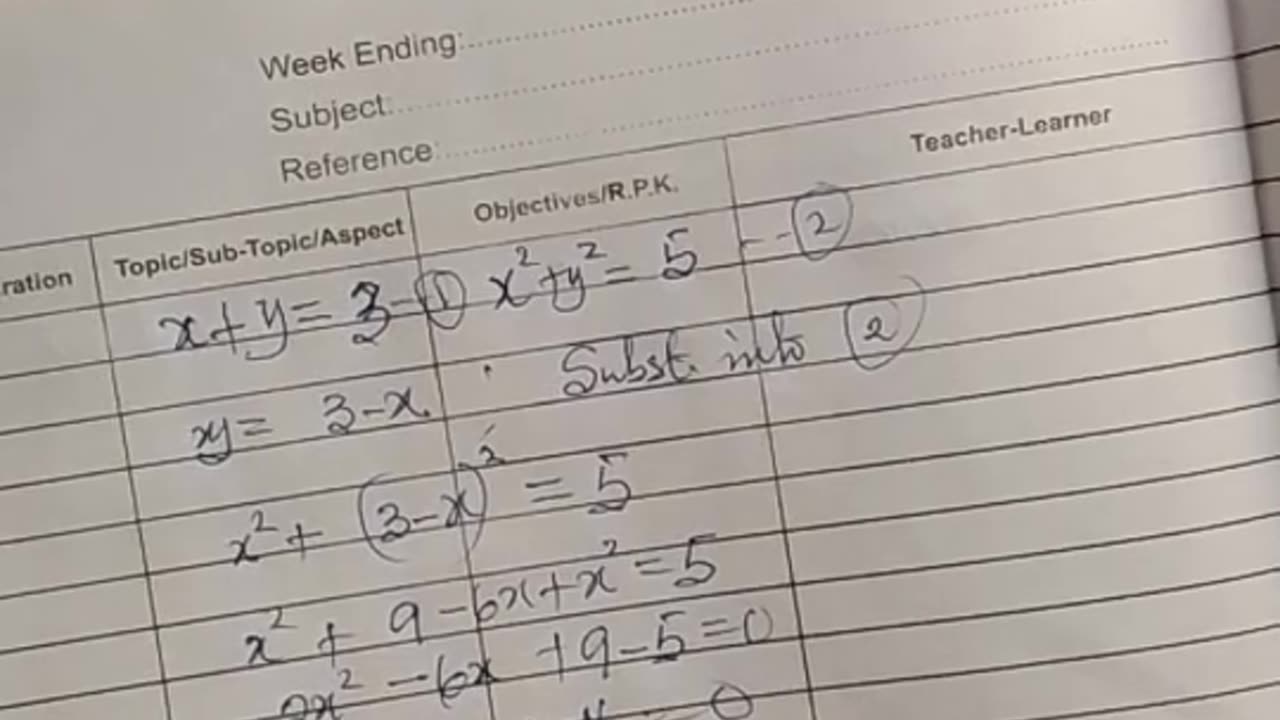 Week Ending:
Subject:
Reference:
ration Topic/Sub-Topic/Aspect Objectives/R.P.K. Teacher-Learner
x+y= 3-① x²+y²= 5 --②
xy= 3-x. Subst. into ②
x²+ (3-x)² = 5
x² + 9-6x+x²=5
2x²-6x +9-5=0
0